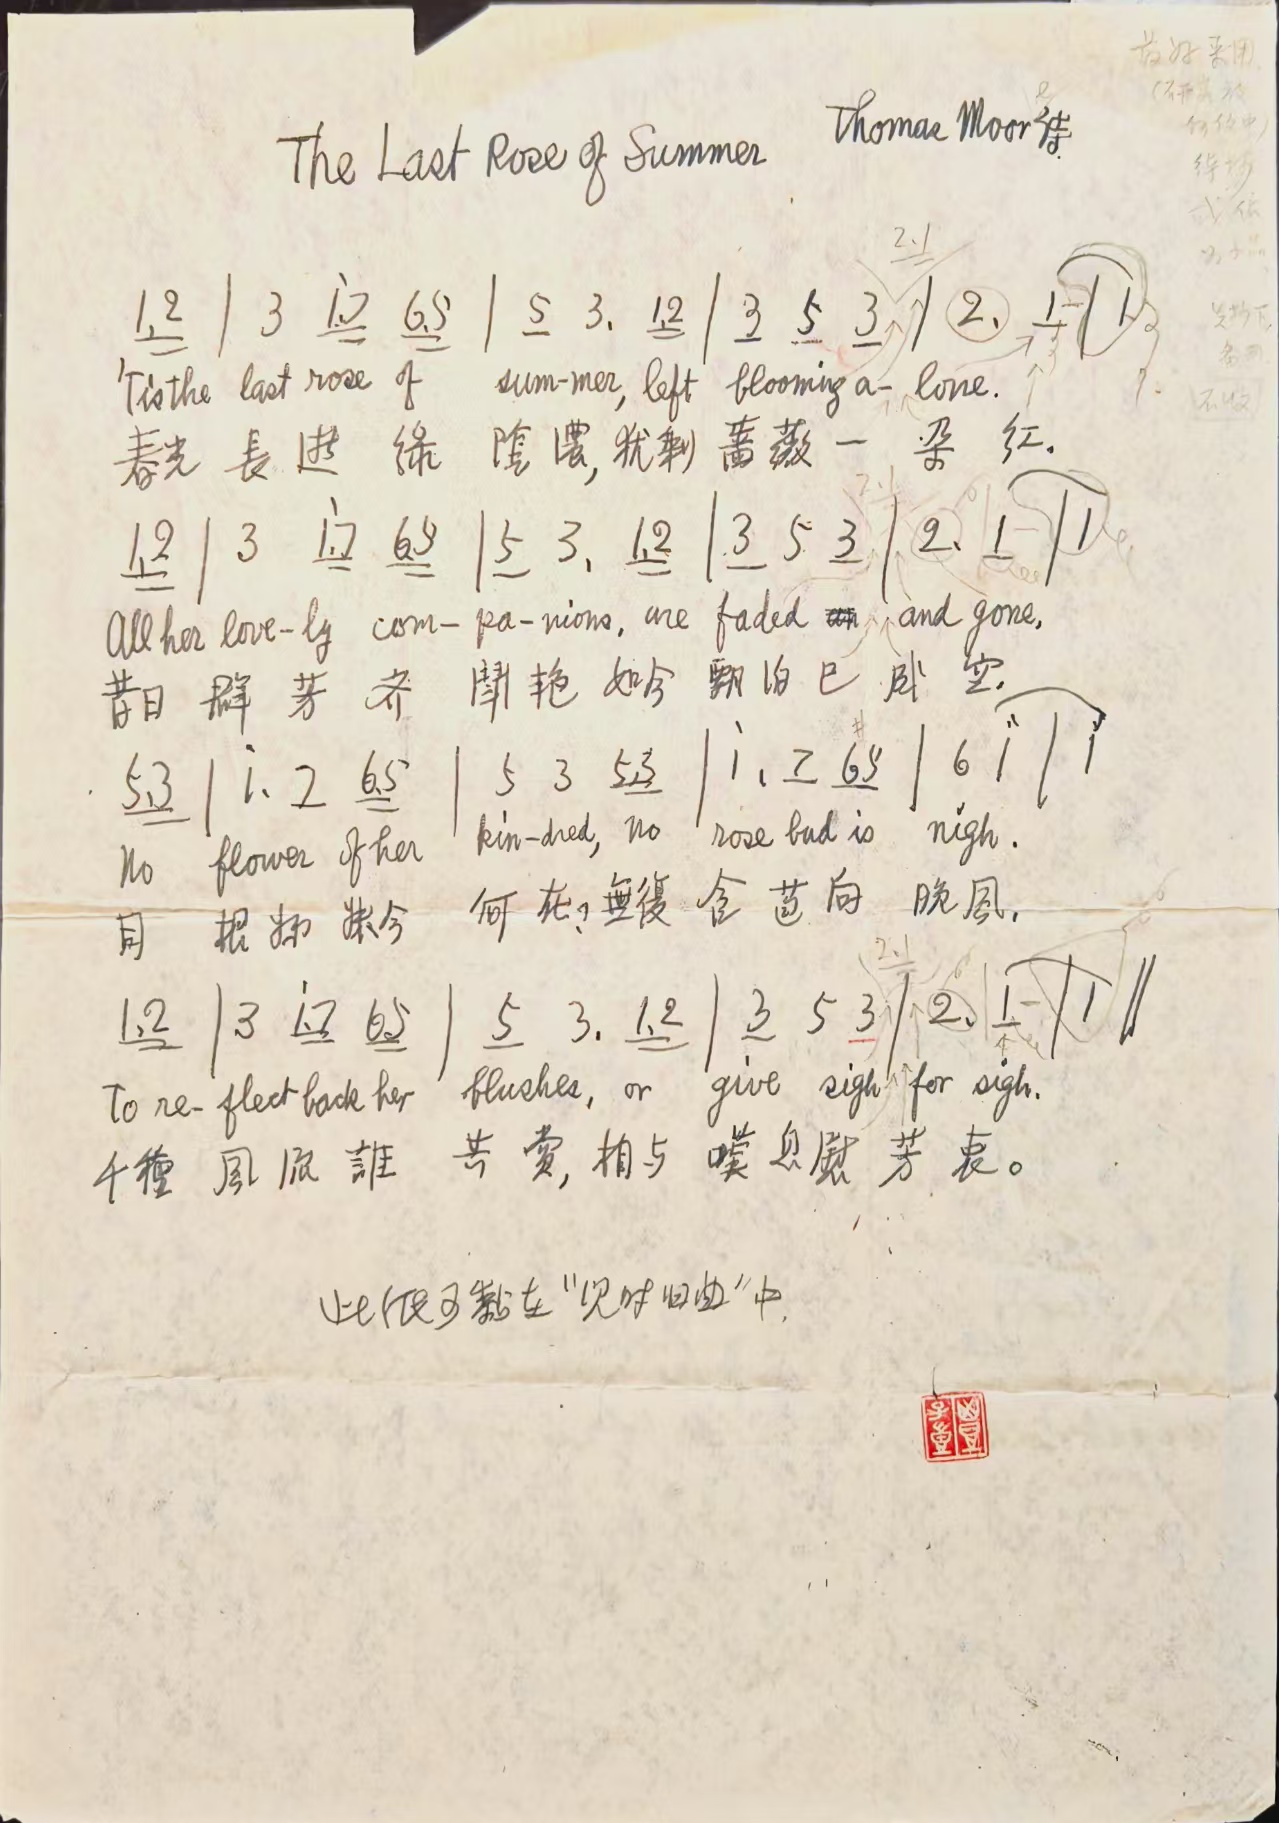 The Last Rose of Summer
Thomas Moore 诗
1.2 | 3 i.7 6.5 | 5 3. 1.2 | 3 5 3 | 2. 1- | 1
'Tis the last rose of sum-mer, left blooming a-lone.
春光長逝綠陰濃,犹剩薔薇一朶紅.
1.2 | 3 i.7 6.5 | 5 3. 1.2 | 3 5 3 | 2. 1- | 1
All her love-ly com-pa-nions, are faded and gone.
昔日群芳齐鬦艳如今飘泊已成空.
5.3 | i. 7 6.5 | 5 3 5.3 | i. 7 65 | 6 i | i
No flower of her kin-dred, no rose bud is nigh.
同根姊妹今何在?無復含苞向晚風.
1.2 | 3 i.7 6.5 | 5 3. 1.2 | 3 5 3 | 2. 1- | 1 ||
To re-flect back her blushes, or give sigh for sigh.
千種風流誰共赏,相与嘆息慰芳衷。
此纸可黏在"儿时旧曲"中.
2.1
2.1
2.1
最好采用